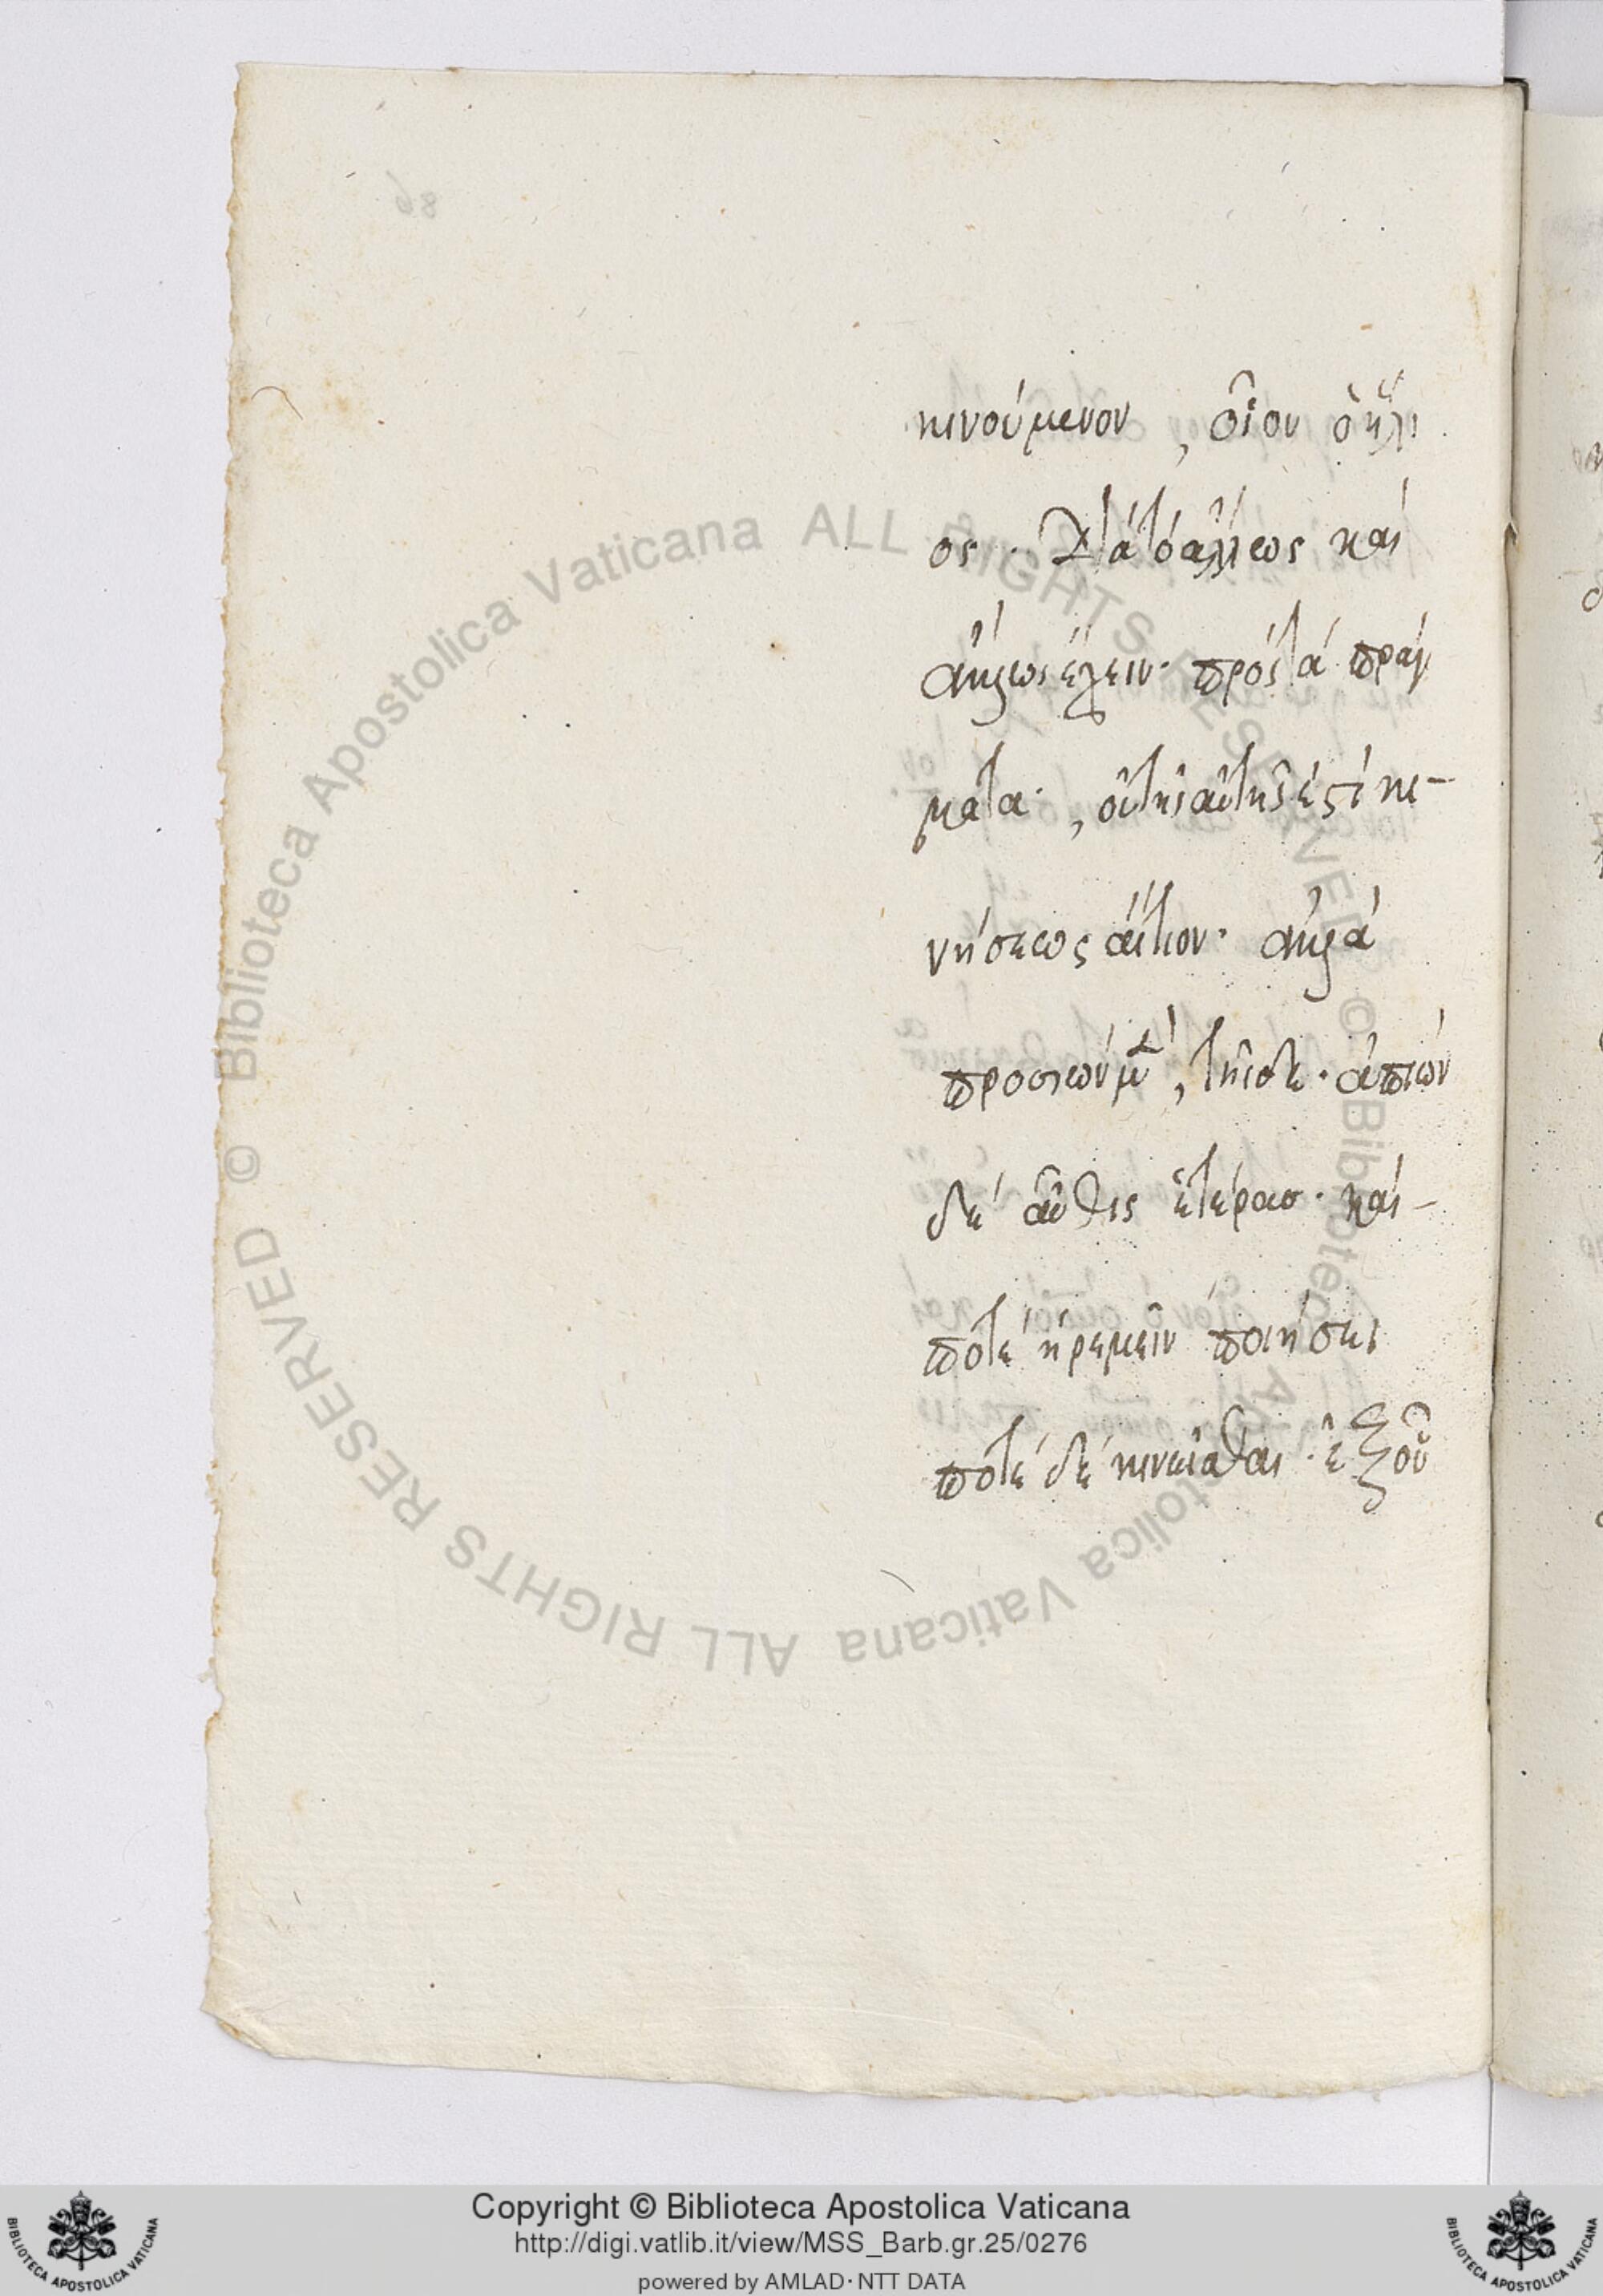 κινούμενον, οἷον ὁ ἥλι
ος. διὰ τὸ ἄλλως καὶ
ἄλλως ἔχειν· πρὸς τὰ πράγ
ματα·, οὐ τῆς αὐτῆς ἐστὶ κι-
νήσεως αἴτιον· ἀλλὰ
προσιὼν μὲν, τῆσδε· ἀπιὼν
δὲ αὖθις ἑτέρασ· καὶ-
ποτὲ ἠρεμεῖν ποιήσει
ποτὲ δὲ κινεῖσθαι· ἐξ οὗ
86
© Biblioteca Apostolica Vaticana ALL RIGHTS RESERVED
© Biblioteca Apostolica Vaticana ALL RIGHTS RESERVED
Copyright © Biblioteca Apostolica Vaticana
http://digi.vatlib.it/view/MSS_Barb.gr.25/0276
powered by AMLAD·NTT DATA
BIBLIOTECA APOSTOLICA VATICANA
BIBLIOTECA APOSTOLICA VATICANA